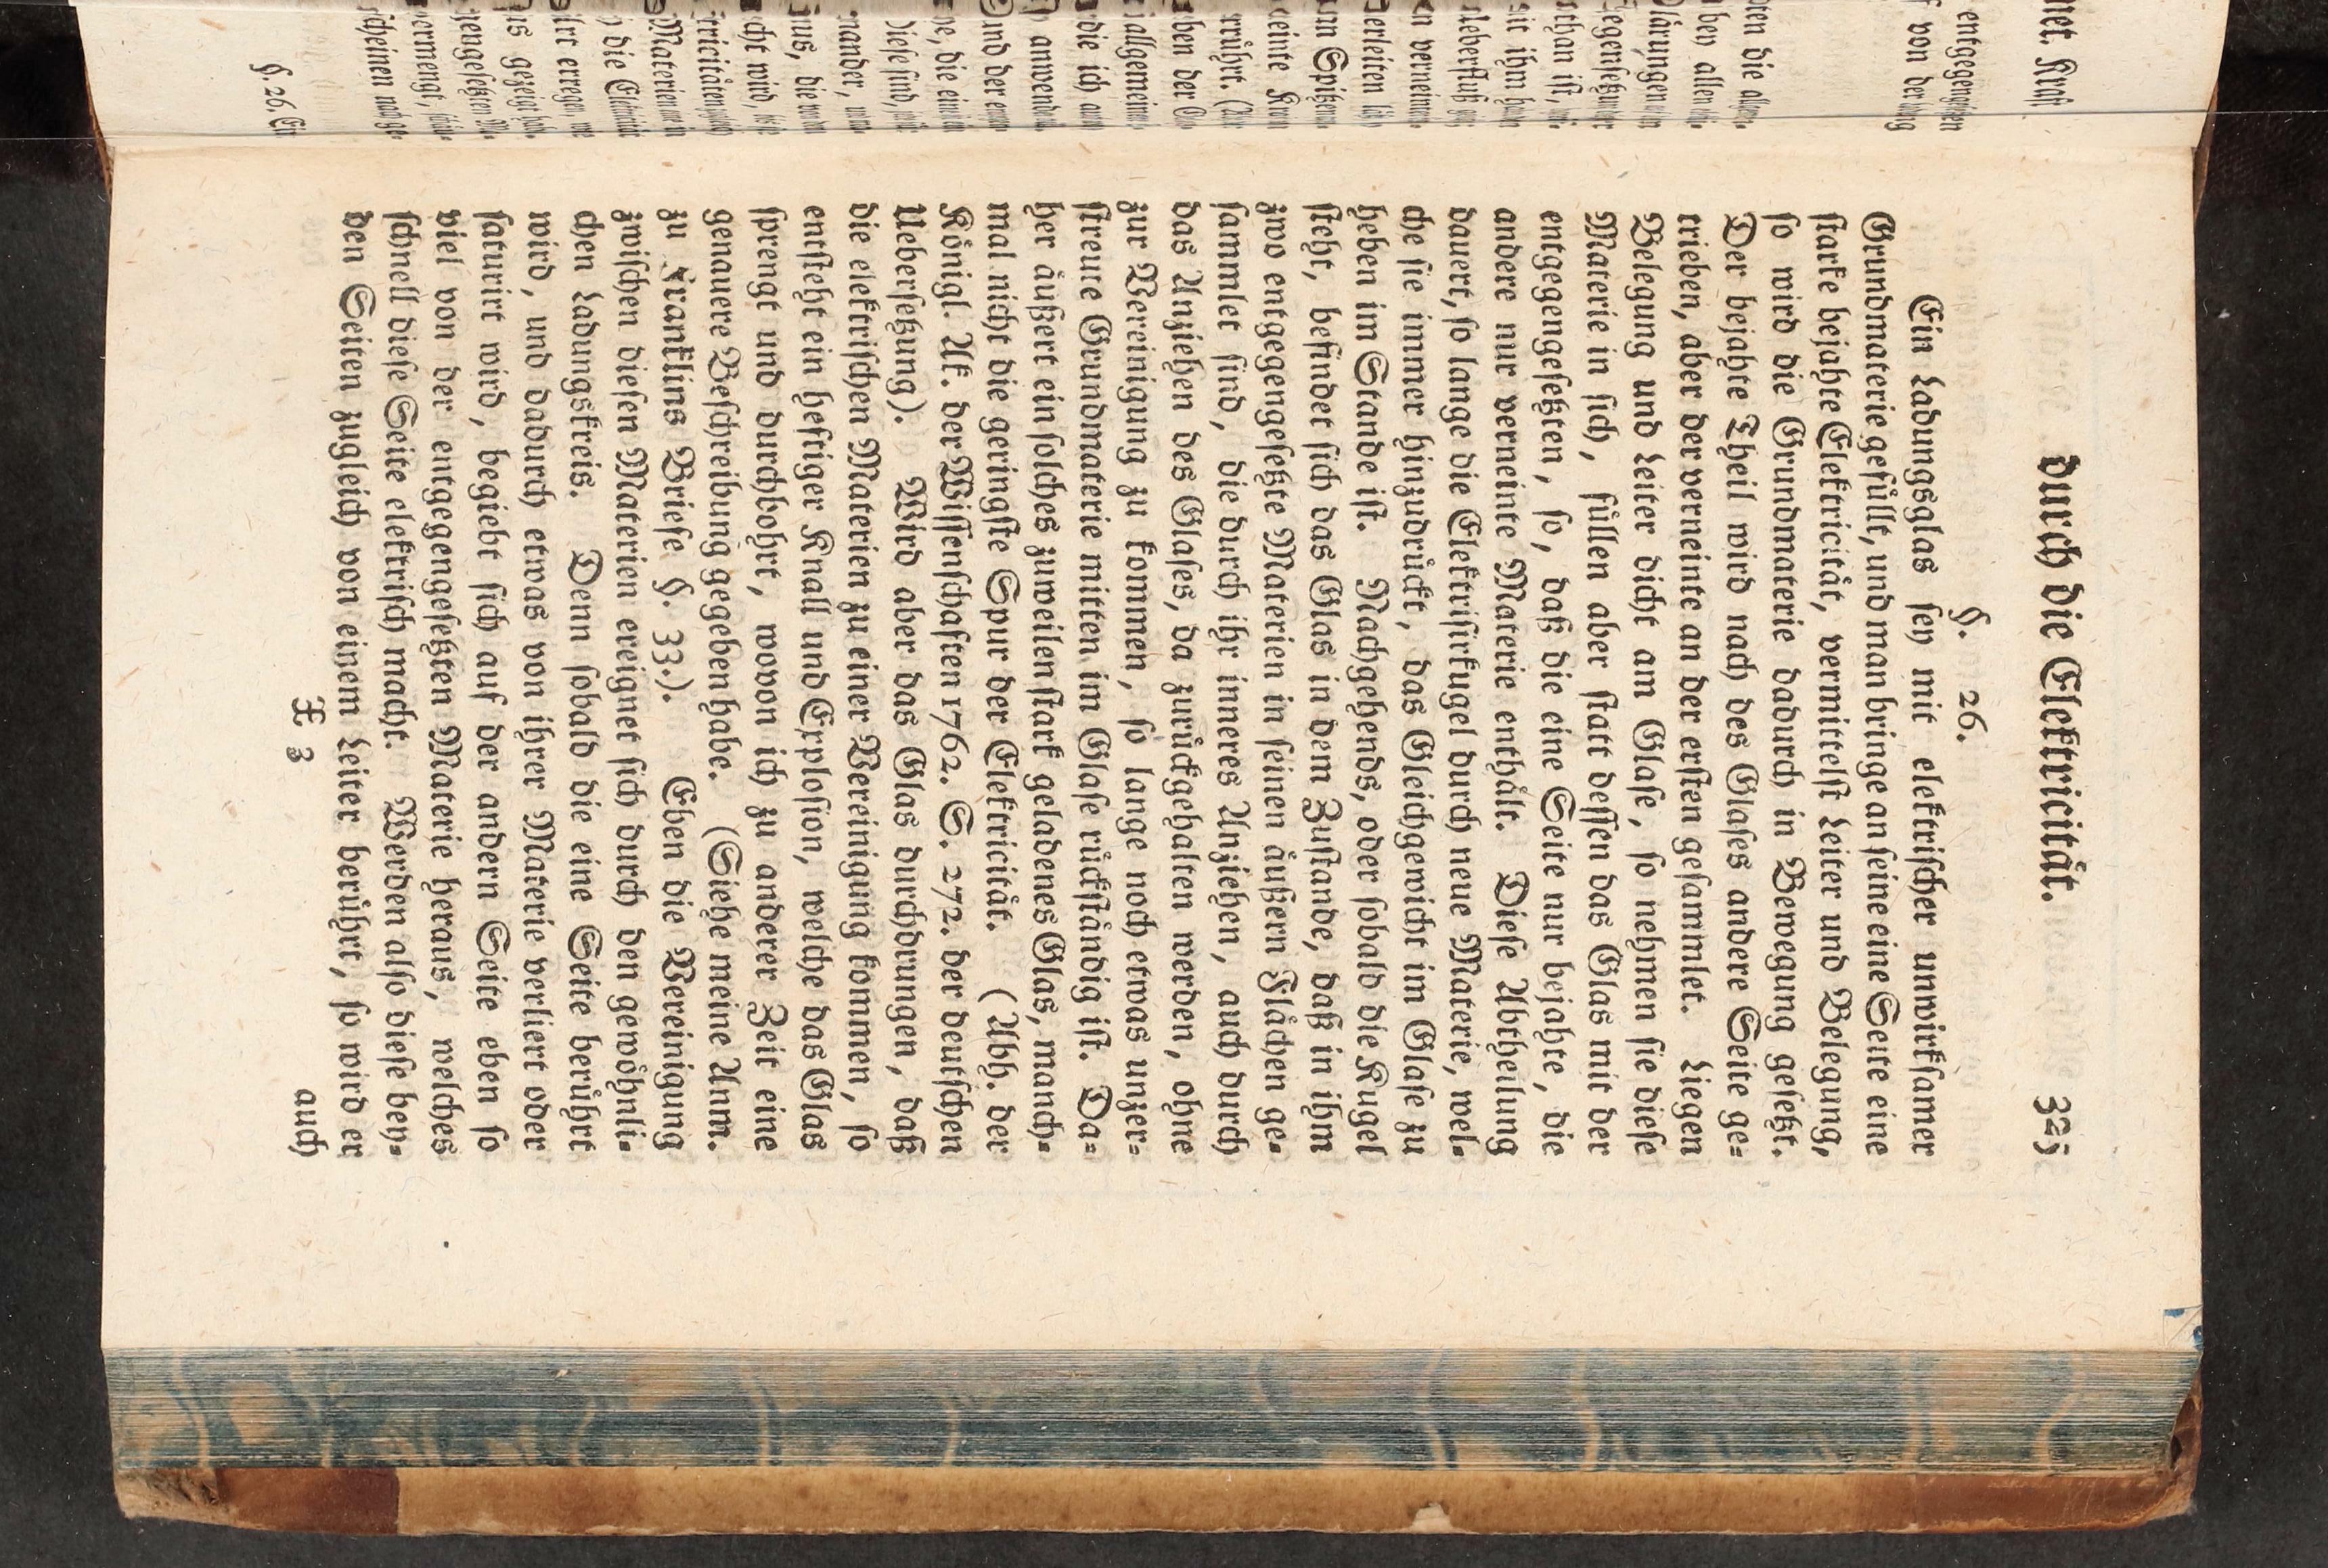 durch die Elektricität. 325
§. 26.
Ein Ladungsglas ſey mit elektriſcher unwirkſamer
Grundmaterie gefüllt, und man bringe an ſeine eine Seite eine
ſtarke bejahte Elektricität, vermittelſt Leiter und Belegung,
ſo wird die Grundmaterie dadurch in Bewegung geſetzt.
Der bejahte Theil wird nach des Glaſes andere Seite ge-
trieben, aber der verneinte an der erſten geſammlet. Liegen
Belegung und Leiter dicht am Glaſe, ſo nehmen ſie dieſe
Materie in ſich, füllen aber ſtatt deſſen das Glas mit der
entgegengeſetzten, ſo, daß die eine Seite nur bejahte, die
andere nur verneinte Materie enthält. Dieſe Abtheilung
dauert, ſo lange die Elektriſirkugel durch neue Materie, wel-
che ſie immer hinzudrückt, das Gleichgewicht im Glaſe zu
heben im Stande iſt. Nachgehends, oder ſobald die Kugel
ſteht, befindet ſich das Glas in dem Zuſtande, daß in ihm
zwo entgegengeſetzte Materien in ſeinen äußern Flächen ge-
ſammlet ſind, die durch ihr inneres Anziehen, auch durch
das Anziehen des Glaſes, da zurückgehalten werden, ohne
zur Vereinigung zu kommen, ſo lange noch etwas unzer-
ſtreute Grundmaterie mitten im Glaſe rückſtändig iſt. Da-
her äußert ein ſolches zuweilen ſtark geladenes Glas, manch-
mal nicht die geringſte Spur der Elektricität. (Abh. der
Königl. Ak. der Wiſſenſchaften 1762. S. 272. der deutſchen
Ueberſetzung). Wird aber das Glas durchdrungen, daß
die elektriſchen Materien zu einer Vereinigung kommen, ſo
entſteht ein heftiger Knall und Exploſion, welche das Glas
ſprengt und durchbohrt, wovon ich zu anderer Zeit eine
genauere Beſchreibung gegeben habe. (Siehe meine Anm.
zu Franklins Briefe §. 33.). Eben die Vereinigung
zwiſchen dieſen Materien ereignet ſich durch den gewöhnli-
chen Ladungskreis. Denn ſobald die eine Seite berührt
wird, und dadurch etwas von ihrer Materie verliert oder
ſaturirt wird, begiebt ſich auf der andern Seite eben ſo
viel von der entgegengeſetzten Materie heraus, welches
ſchnell dieſe Seite elektriſch macht. Werden alſo dieſe bey-
den Seiten zugleich von einem Leiter berührt, ſo wird er
X 3 auch